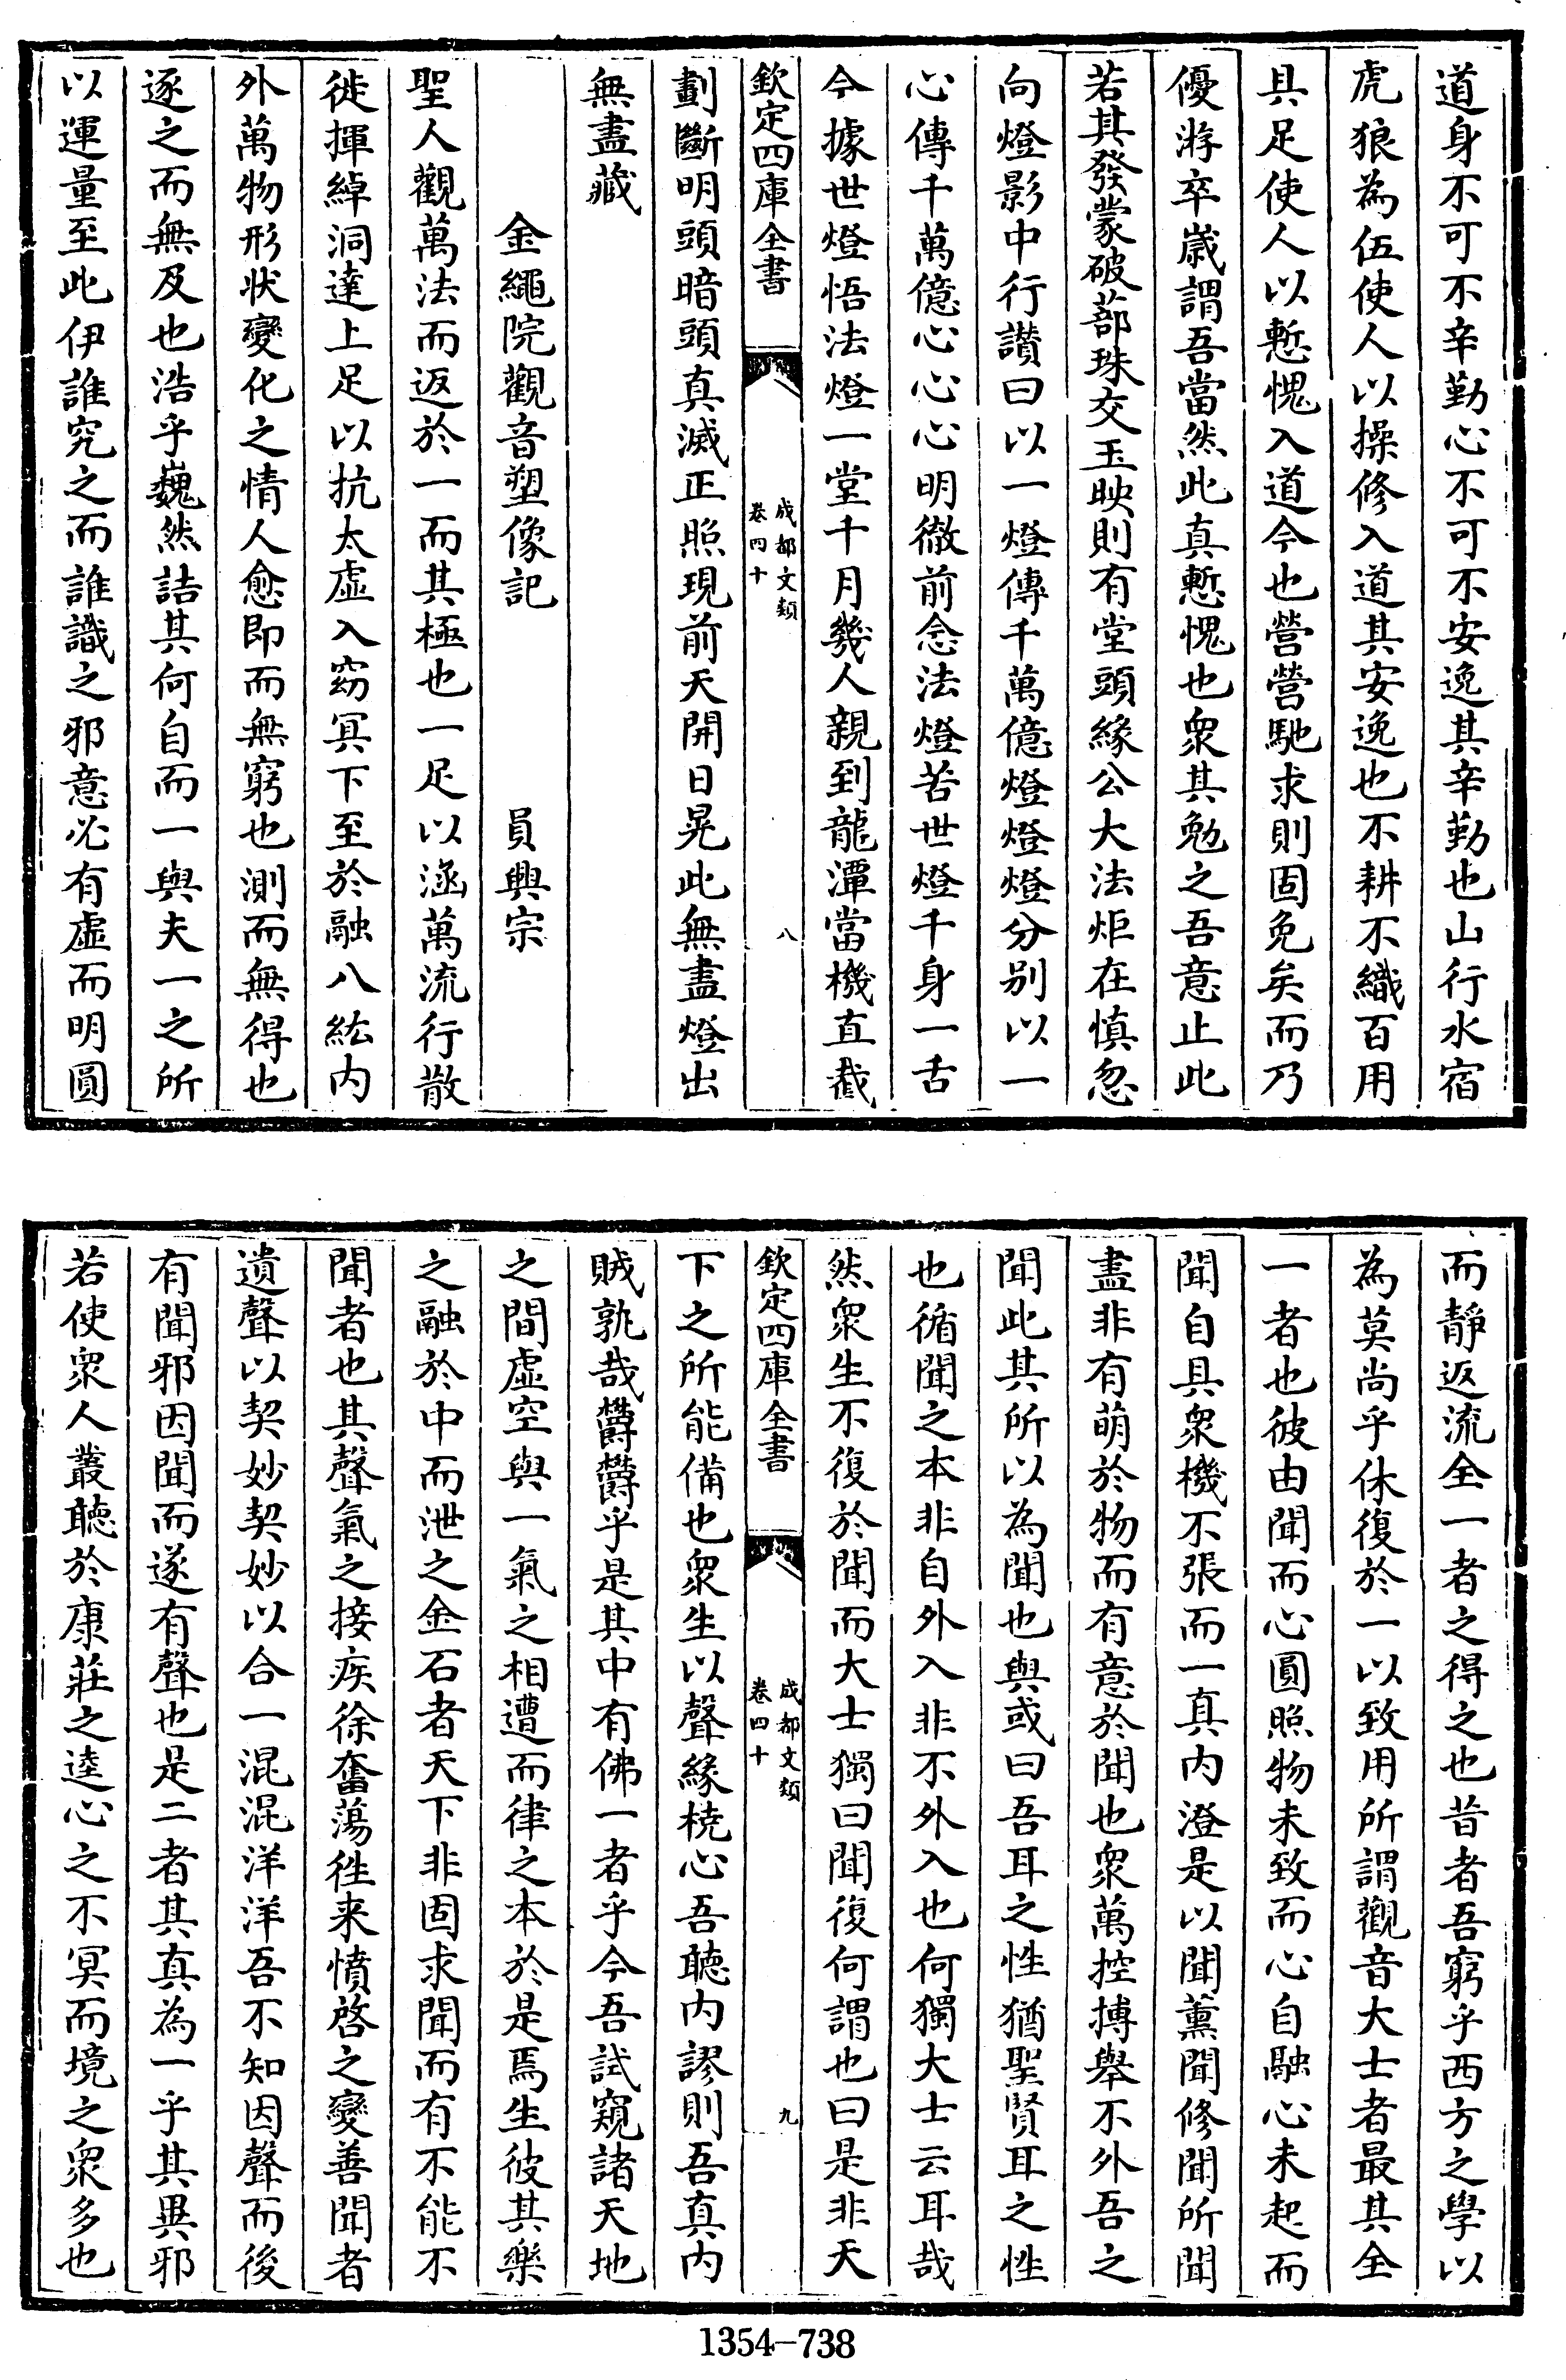 道身不可不辛勤心不可不安逸其辛勤也山行水宿
虎狼為伍使人以操修入道其安逸也不耕不織百用
具足使人以慙愧入道今也營營馳求則固免矣而乃
優游卒歲謂吾當然此真慙愧也衆其勉之吾意止此
若其發蒙破蔀珠交玉映則有堂頭緣公大法炬在慎忽
向燈影中行讃曰以一燈傳千萬億燈燈燈分别以一
心傳千萬億心心心明徹前念法燈苦世燈千身一舌
今據世燈悟法燈一堂千月幾人親到龍潭當機直截
欽定四庫全書
成都文類
卷四十
八
劃斷明頭暗頭真滅正照現前天開日晃此無盡燈出
無盡藏
金繩院觀音塑像記 員興宗
聖人觀萬法而返於一而其極也一足以涵萬流行散
徙揮綽洞達上足以抗太虛入窈冥下至於融八紘内
外萬物形狀變化之情人愈即而無窮也測而無得也
逐之而無及也浩乎巍然詰其何自而一與夫一之所
以運量至此伊誰究之而誰識之邪意必有虛而明圓
而靜返流全一者之得之也昔者吾窮乎西方之學以
為莫尚乎休復於一以致用所謂觀音大士者最其全
一者也彼由聞而心圓照物未致而心自融心未起而
聞自具衆機不張而一真内澄是以聞薰聞修聞所聞
盡非有萌於物而有意於聞也衆萬控搏舉不外吾之
聞此其所以為聞也與或曰吾耳之性猶聖賢耳之性
也循聞之本非自外入非不外入也何獨大士云耳哉
然衆生不復於聞而大士獨曰聞復何謂也曰是非天
欽定四庫全書
成都文類
卷四十
九
下之所能備也衆生以聲緣橈心吾聽内謬則吾真内
賊孰哉欝欝乎是其中有佛一者乎今吾試窺諸天地
之間虛空與一氣之相遭而律之本於是焉生彼其樂
之融於中而泄之金石者天下非固求聞而有不能不
聞者也其聲氣之接疾徐奮蕩徃来憤啓之變善聞者
遺聲以契妙契妙以合一混混洋洋吾不知因聲而後
有聞邪因聞而遂有聲也是二者其真為一乎其異邪
若使衆人叢聽於康莊之逵心之不冥而境之衆多也
1354-738